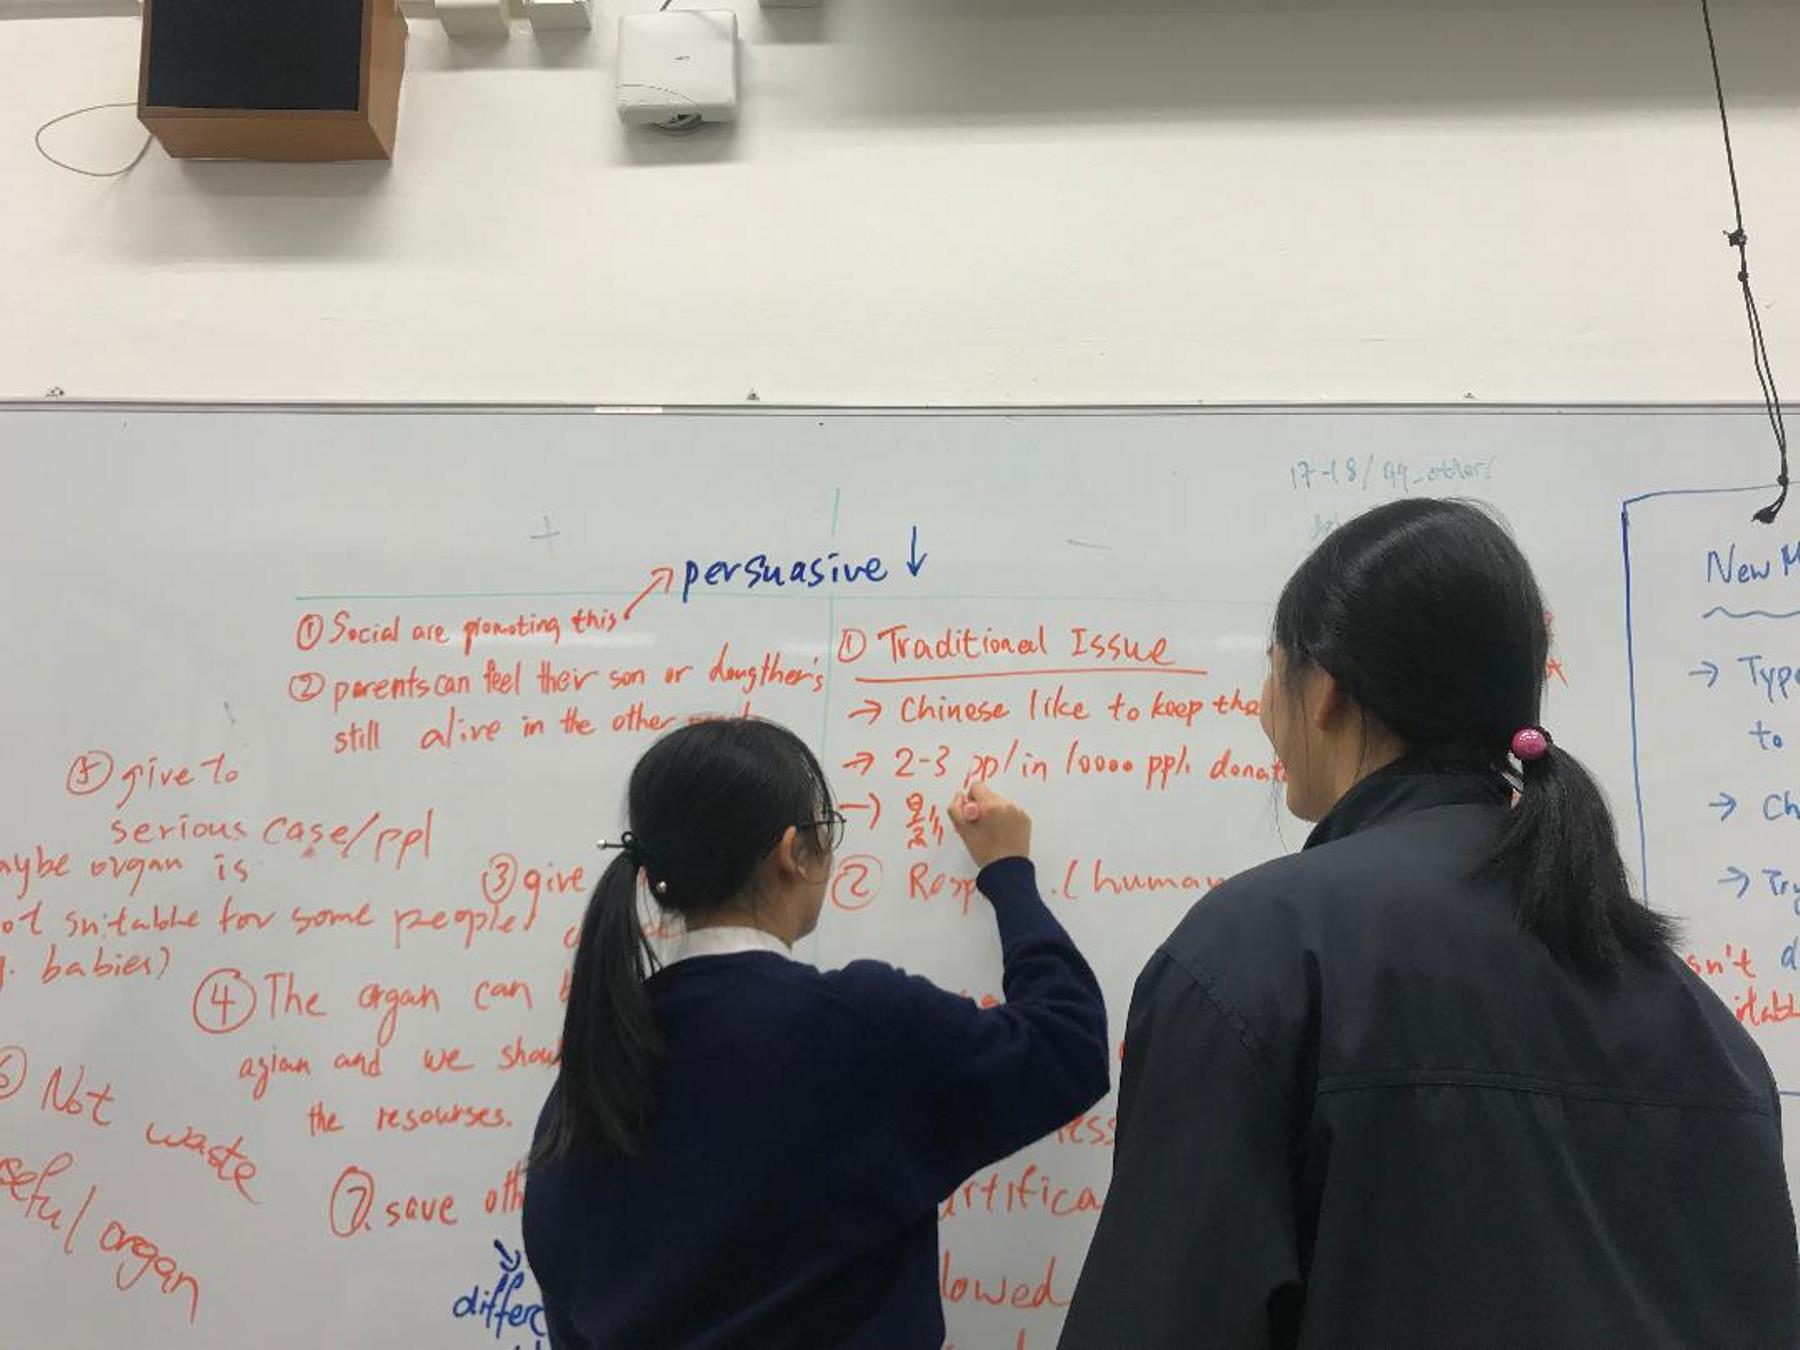 17-18/
+
persuasive ↓
① Social are promoting this
② parents can feel their son or daugther's
still alive in the other
⑤ give to
serious case/ppl
aybe organ is
ot suitable for some people
babies)
③ give
④ The organ can
agian and we shou
the resourses.
⑥ Not waste
seful organ
⑦. save oth
differ
① Traditional Issue
→ Chinese like to keep the
→ 2-3 ppl in 10000 ppl. donat
→
② Resp .(human
ess
artifica
lowed
New M
→ Type
to
→ Ch
→ Try
sn't d
itabl